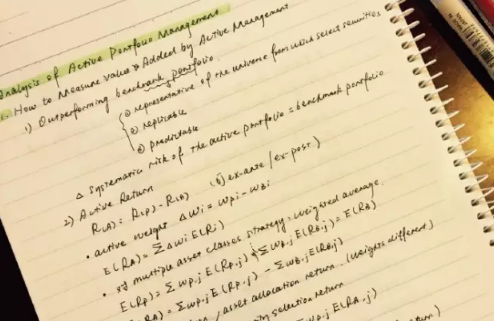 Analysis of Active Portfolio Management
1. How to Measure Value Added by Active Management
1) Outperforming benchmark portfolio
① representative of the universe from which select securities
② replicable
③ predictable
△ systematic risk of the active portfolio = benchmark portfolio
2) Active Return
R(A) = R(P) - R(B) (ex-ante / ex-post)
• active weight ΔWi = Wpi - WBi
E(RA) = ΣΔWi E(Ri)
• if multiple asset classes strategy: weighted average
E(RP) = ΣWP,j E(RP,j) ΣWB,j E(RB,j) = E(RB)
E(RA) = ΣWP,j E(RP,j) - ΣWB,j E(RB,j)
asset allocation return (weights different)
selection return
WP,j E(RA,j)
return)